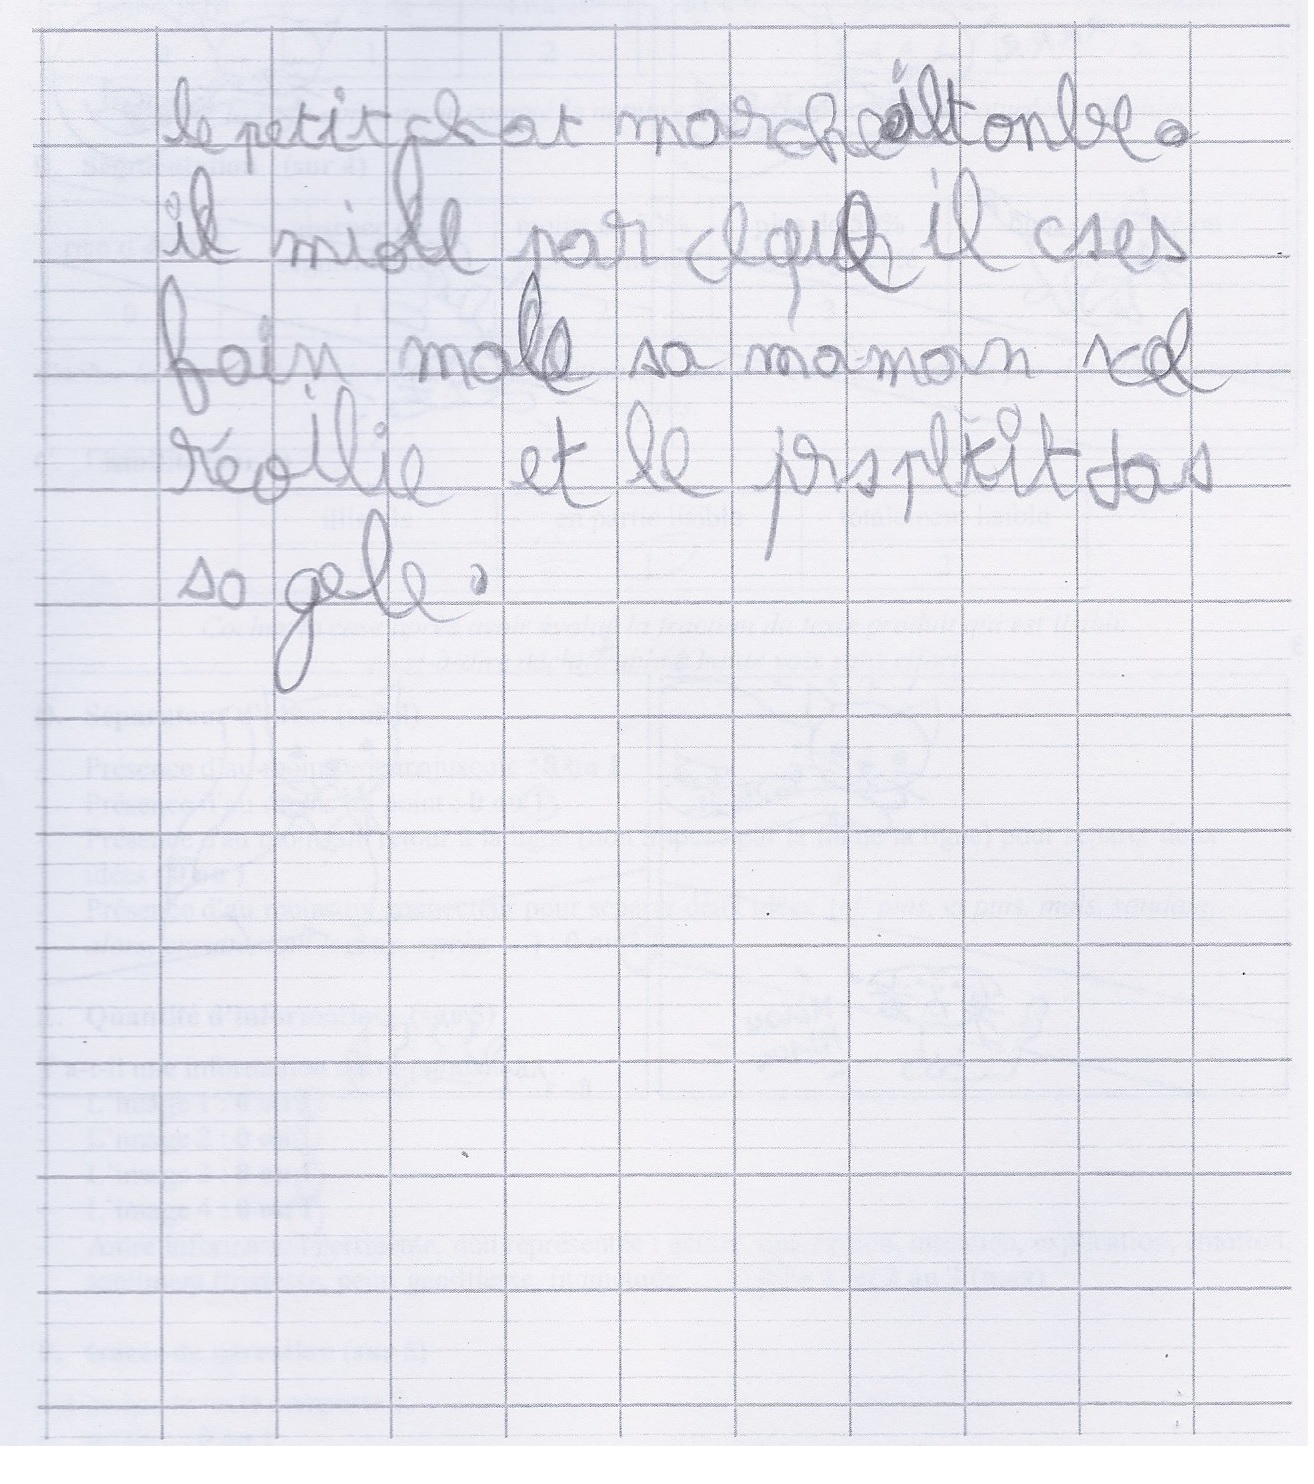 le petit chat marche ilt onbe.
il mioll par ceque il cses
fain male sa maman sel
réollie et le tas
so gele.